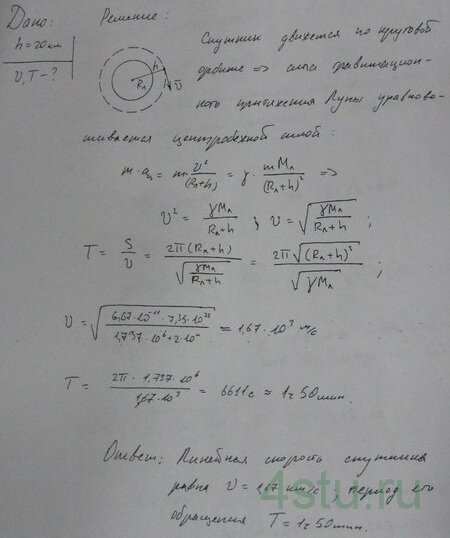 Дано:
h = 20 км
v, T - ?
Решение:
Rл h v
Спутник движется по круговой
орбите => сила гравитацион-
ного притяжения Луны уравнове-
шивается центробежной силой:
m·aₙ = m·v²/(Rл+h) = γ·mMл/(Rл+h)² =>
v² = γMл/(Rл+h) ; v = √(γMл/(Rл+h)) ;
T = S/v = 2π(Rл+h)/√(γMл/(Rл+h)) = 2π√(Rл+h)³/√γMл ;
v = √(6,67·10⁻¹¹·7,35·10²²/(1,737·10⁶+2·10⁴)) = 1,67·10³ м/с
T = 2π·1,737·10⁶/(1,67·10³) = 6611 с ≈ 1ч 50мин.
Ответ: Линейная скорость спутника
равна v = 1,67 км/с, период его
обращения T = 1ч 50мин.
4stu.ru